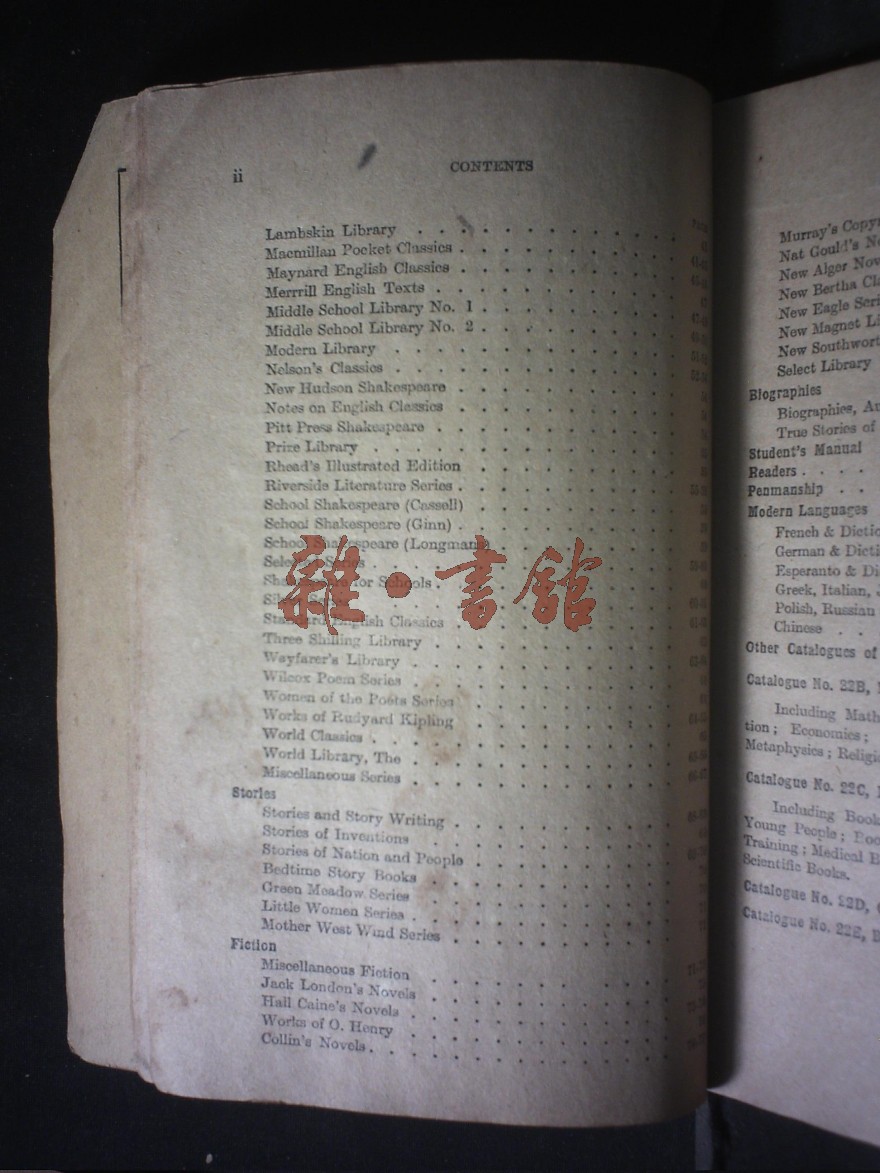 ii
CONTENTS
Lambskin Library
Macmillan Pocket Classics
Maynard English Classics
Merrrill English Texts
Middle School Library No. 1
Middle School Library No. 2
Modern Library
Nelson's Classics
New Hudson Shakespeare
Notes on English Classics
Pitt Press Shakespeare
Prize Library
Rhead's Illustrated Edition
Riverside Literature Series
School Shakespeare (Cassell)
School Shakespeare (Ginn)
School Shakespeare (Longmans)
Series
for Schools
Standard English Classics
Three Shilling Library
Wayfarer's Library
Wilcox Poem Series
Women of the Poets Series
Works of Rudyard Kipling
World Classics
World Library, The
Miscellaneous Series
Stories
Stories and Story Writing
Stories of Inventions
Stories of Nation and People
Bedtime Story Books
Green Meadow Series
Little Women Series
Mother West Wind Series
Fiction
Miscellaneous Fiction
Jack London's Novels
Hall Caine's Novels
Works of O. Henry
Collin's Novels
雜·書館
Murray's Copy
Nat Gould's
New Alger Nov
New Bertha Cl
New Eagle Seri
New Magnet Li
New Southwort
Select Library
Biographies
Biographies, Au
True Stories of
Student's Manual
Readers
Penmanship
Modern Languages
French & Dictio
German & Dicti
Esperanto & Di
Greek, Italian,
Polish, Russian
Chinese
Other Catalogues of
Catalogue No. 22B,
Including Math
tion; Economics;
Metaphysics; Religi
Catalogue No. 22C,
Including Book
Young People;
Training; Medical B
Scientific Books.
Catalogue No. 22D,
Catalogue No. 22E, B